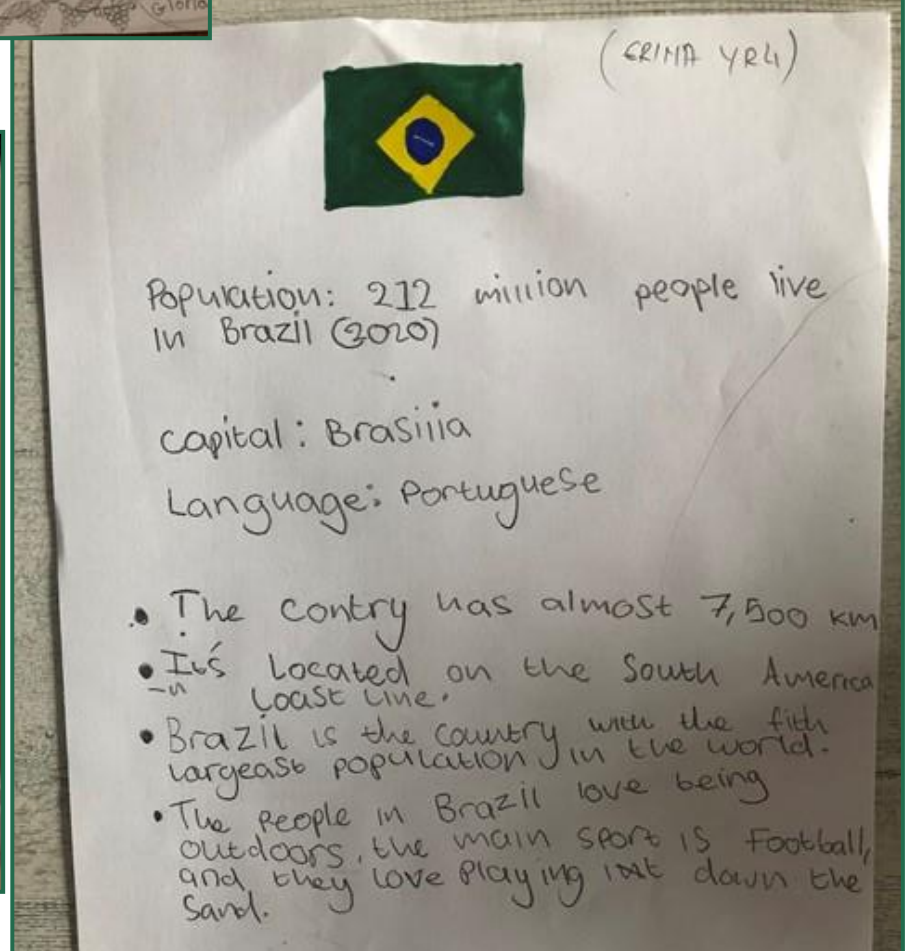 Gloria
(ERINA YR4)
Population: 212 million people live
in Brazil (2020)
capital: Brasilia
Language: Portuguese
• The contry has almost 7,500 km
• It's Located on the South America
Coast Line.
• Brazil is the country with the fith
largeast population in the world.
• The people in Brazil love being
outdoors, the main sport is Football,
and they love playing it down the
Sand.